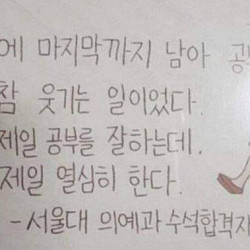 에 마지막까지 남아 공
참 웃기는 일이었다.
제일 공부를 잘하는데.
제일 열심히 한다.
-서울대 의예과 수석합격자